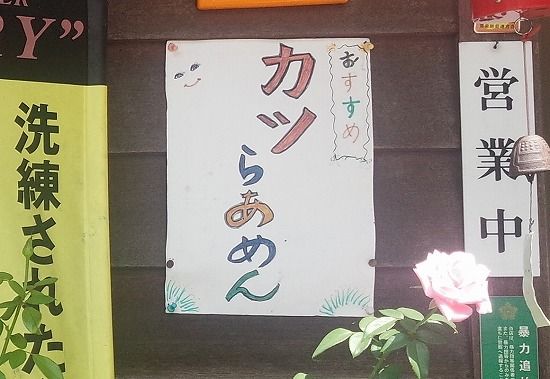 おすすめ
カツ
らあめん
営業中
RY”
洗練された
暴力追